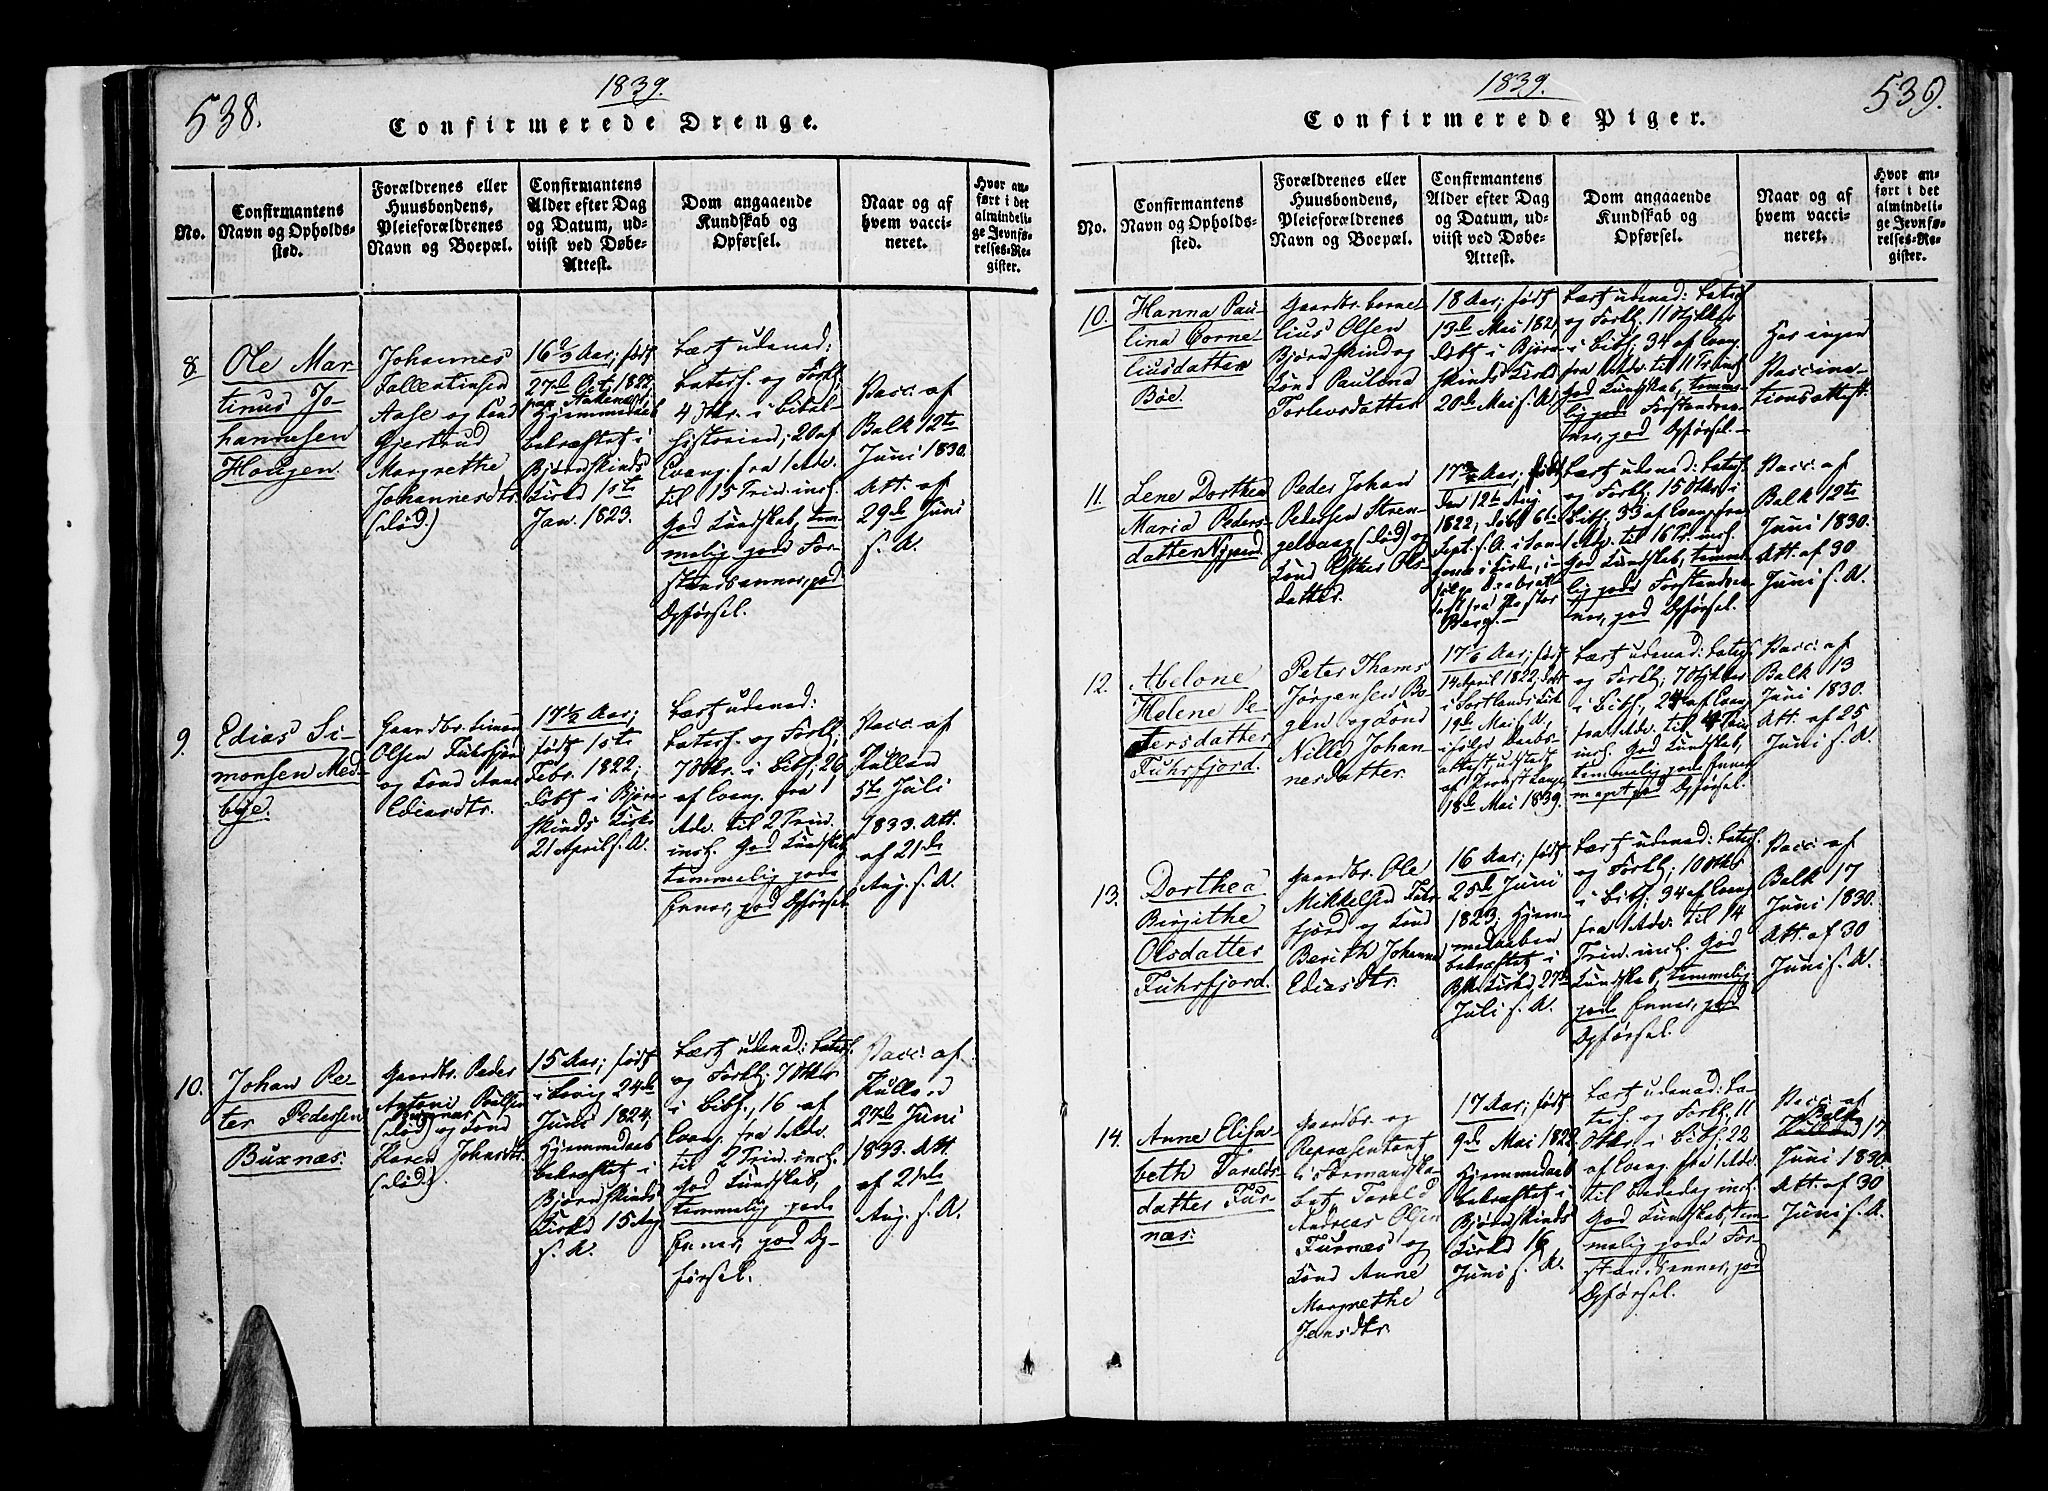 538.
1839.
Confirmerede Drenge.
No.
Confirmantens
Navn og Opholds-
sted.
Forældrenes eller
Huusbondens,
Pleieforældrenes
Navn og Boepæl.
Confirmantens
Alder efter Dag
og Datum, ud-
viist ved Døbe-
Attest.
Dom angaaende
Kundskab og
Opførsel.
Naar og af
hvem vacci-
neret.
Hvor an-
ført i det
almindeli-
ge Jevnfø-
relses-Re-
gister.
8
Ole Mar-
tinus Jo-
hannesen
Hougen.
Johannes
Fallentinsen
Aase og Kone
Gjertrud
Margrethe
Johannesdtr.
(død.)
16 2/3 Aar; født
27de Oct. 1822
Hjemmedaab
bekræftet i
Bjørnskinds
Kirke 1ste
Jan. 1823.
Lært udenad:
Catech. og Forkl;
4 Stkr. i Bibel-
historien; 20 af
Evang. fra 1 Adv.
til 15 Trin. incl.
God Kundskab, tem-
melig gode For-
standsevner, god
Opførsel.
Vacc. af
Balk 12te
Juni 1830.
Att. af
29de Juni
s. A.
9.
Edias Si-
monsen Med-
bye.
Gaardbr. Simon
Olsen Fuhrfjord
og Kone Ane
Ediasdtr.
17 1/2 Aar;
født 1ste
Febr. 1822;
døbt i Bjørn-
skinds Kirke
21 April s. A.
Lært udenad:
Catech. og Forkl;
7 Stkr. i Bibh; 26
af Evang. fra 1
Adv. til 2 Trin.
incl. God Kundskab,
temmelig gode
Evner, god Opførsel.
Vacc. af
Kulland
5te Juli
1833. Att.
af 21de
Aug. s. A.
10.
Johan Pe-
ter Pedersen
Buxnæs.
Gaardbr. Peder
Antoni Poulsen
Buxnæs
(død) og Kone
Karen Johansdtr.
(død)
15 Aar; født
i Lovig 24de
Juni 1824;
Hjemmedaab
bekræftet i
Bjørnskinds
Kirke 15 Aug
s. A.
Lært udenad: Catech.
og Forkl; 7 Stkr
i Bibh., 16 af
Evang. fra 1 Adv.
til 2 Trin. incl.
God Kundskab,
temmelig gode
Evner, god Op-
førsel.
Vacc. af
Kulland
27de Juni
1833. Att.
af 21de
Aug. s. A.
539.
1839.
Confirmerede Piger.
No.
Confirmantens
Navn og Opholds-
sted.
Forældrenes eller
Huusbondens,
Pleieforældrenes
Navn og Boepæl.
Confirmantens
Alder efter Dag
og Datum, ud-
viist ved Døbe-
Attest.
Dom angaaende
Kundskab og
Opførsel.
Naar og af
hvem vacci-
neret.
Hvor an-
ført i det
almindeli-
ge Jevnfø-
relses-Re-
gister.
10.
Hanna Pau-
lina Corne-
liusdatter
Bøe.
Gaardbr. Corne-
lius Olsen
Bjørnskind og
Kone Paulina
Torlevsdatter
18 Aar; født
13de Mai 1821
døbt i Bjørn-
skinds Kirke
20de Mai s. A.
Lært udenad: Catech
og Forkl; 11 Stykker
i Bibh; 34 af Evang.
fra 1 Adv. til 11 Tr. incl.
God Kundskab, temme-
lig gode Forstandsev-
ner, god Opførsel.
Har ingen
Vaccina-
tionsattest.
11.
Lene Dorthea
Maria Peders-
datter Nygaard.
Peder Johan
Pedersen Stren-
gelvaag (død) og
Kone Esther Ols-
datter.
17 3/4 Aar; født
den 12te Aug
1822; døbt 6te
Sept. s. A. i Lan-
genes Kirke, i-
følge Daabsatt-
test fra Pastor
Berg.
Lært udenad: Catech.
og Forkl; 15 Stkr. i
Bibh; 33 af Evang. fra
1 Adv. til 16 Tr. incl.
God Kundskab, temme-
lig gode Forstandsev-
ner, god Opførsel.
Vacc. af
Balk 12te
Juni 1830.
Att. af 30
Juni s. A.
12.
Abelone
Helene Pe-
tersdatter
Fuhrfjord.
Peter Thams
Jørgensen Bo-
gen og Kone
Nille Johan-
nesdatter.
17 1/6 Aar; født
14 April 1822; døbt
i Sortlands Kirke
19de Mai s. A,
ifølge Daabs-
attest, udstedt
af Provst Lange
18de Mai 1839.
Lært udenad: Catech.
og Forkl; 7 Stykker
i Bibh, 24 af Evang
fra 1 Adv. til 4 Trin
incl. God Kundskab,
temmelig gode Evner
meget god Opførsel.
Vacc: af
Balk 13
Juni 1830.
Att. af 25
Juni s. A.
13.
Dorthea
Birgithe
Olsdatter
Fuhrfjord.
Gaardbr. Ole
Mikkelsen Fuhr-
fjord og Kone
Berith Johanna
Ediasdtr.
16 Aar; født
25de Juni
1823; Hjem-
medaaben
bekræftet i
Bsk. Kirke, 27de
Juli s. A.
Lært udenad: Catech.
og Forkl; 10 Stkr
i Bibh; 34 af Evang
fra 1 Adv. til 14
Trin. incl. God
Kundskab, temmelig
gode Evner, god
Opførsel.
Vacc: af
Balk 17
Juni 1830.
Att. af 30
Juni s. A.
14.
Anne Elisa-
beth Taralds-
datter Fur-
næs:
Gaardbr. og
Repræsentant
i Formandska-
bet Tarald
Andreas Olsen
Furnæs og
Kone Anne
Margrethe
Jensdtr.
17 Aar; født
9de Mai 1822
Hjemmedaab
bekræftet i
Bjørnskinds
Kirke 16
Juni s. A.
Lært udenad: Ca-
tech. og Forkl; 11
Stkr i Bibh; 22
af Evang. fra 1 Adv.
til Bededag incl.
God Kundskab, tem-
melig gode For-
standsevner, god
Opførsel.
Vacc: af
Balk
17
Juni 1830.
Att. af 30
Juni s. A.